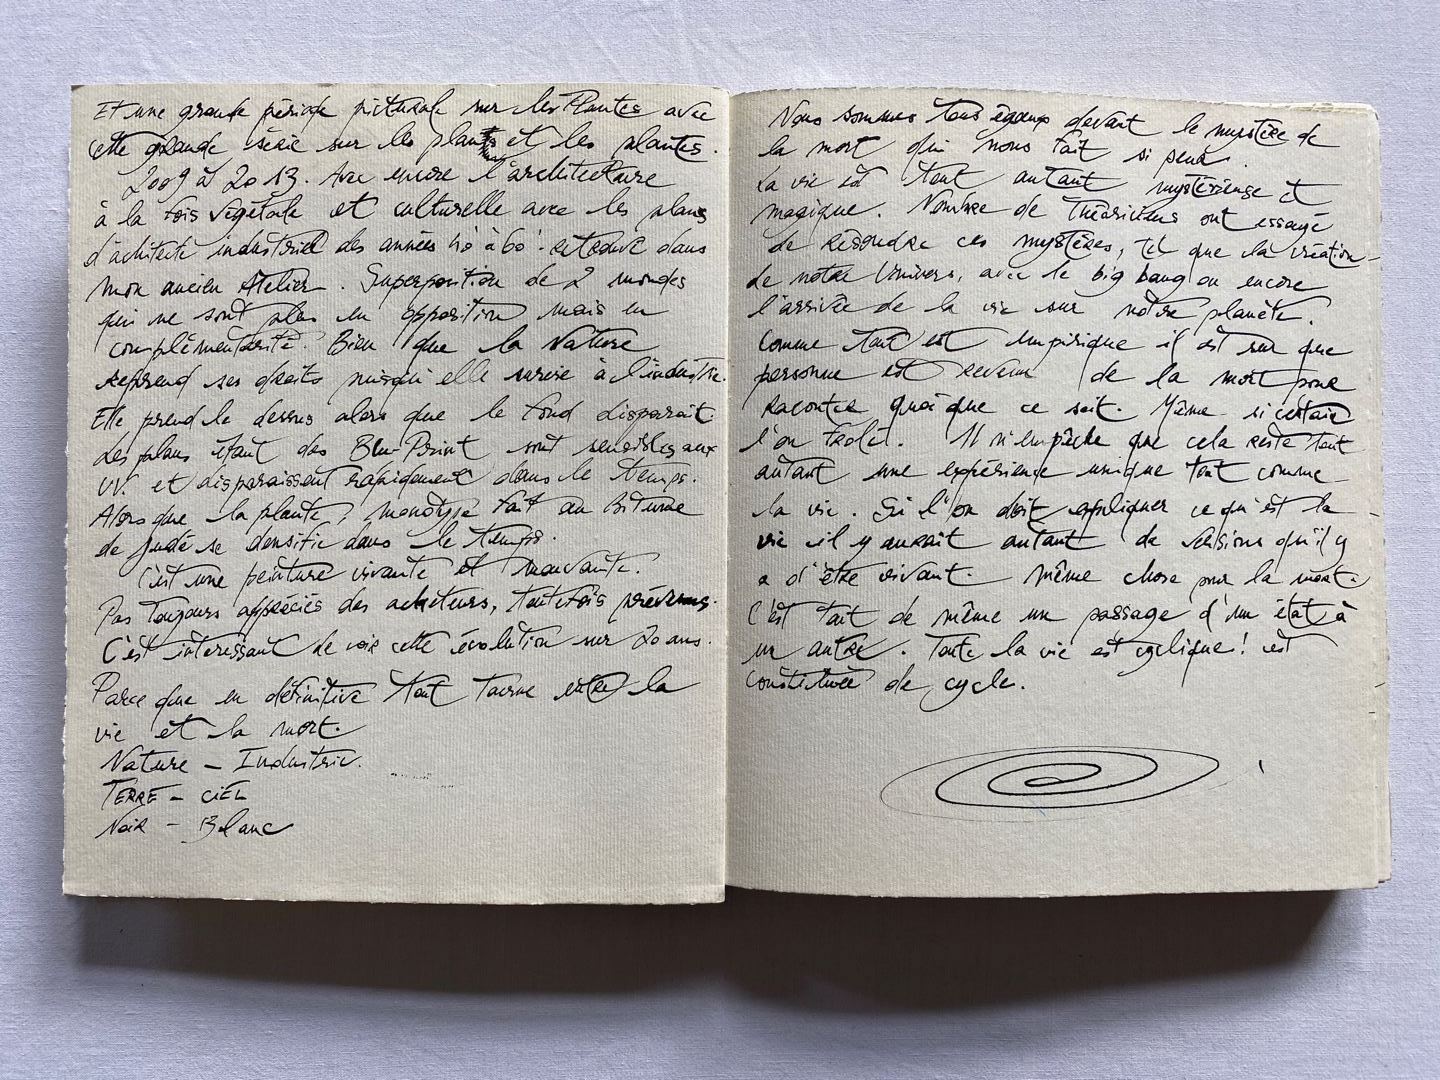 Et une grande période picturale sur les Plantes avec
cette grande série sur les plans et les plantes.
2009 à 2013. Avec encore l'architecture
à la fois végétale et culturelle avec les plans
d'architecte industriel des années 40 à 60 retrouvé dans
mon ancien Atelier. Superposition de 2 mondes
qui ne sont plus en opposition mais en
complémentarité. Bien que la Nature
reprend ses droits puisqu'elle survie à l'industrie.
Elle prend le dessus alors que le fond disparait.
Les plans étant des Blu-Print sont sensibles aux
UV. et disparaissent rapidement dans le temps.
Alors que la plante, monotype fait au Bitume
de Judé se densifie dans le temps.
C'est une peinture vivante et mouvante.
Pas toujours appréciés des acheteurs, toutefois prévenus.
C'est intéressant de voir cette évolution sur 20 ans.
Parce que en définitive tout tourne entre la
vie et la mort.
Nature - Industrie.
TERRE - CIEL
Noir - Blanc
Nous sommes tous égaux devant le mystère de
la mort qui nous fait si peur.
La vie est tout autant mystérieuse et
magique. Nombre de Théoriciens ont essayé
de résoudre ces mystères, tel que la création
de notre Univers, avec le big bang ou encore
l'arrivée de la vie sur notre planète.
Comme tout est empirique il est sûr que
personne est revenu de la mort pour
raconter quoi que ce soit. Même si certain
l'on frolé. Il n'empêche que cela reste tout
autant une expérience unique tout comme
la vie. Si l'on doit expliquer ce qu'est la
vie il y aurait autant de versions qu'il y
a d'être vivant. Même chose pour la mort.
C'est tout de même un passage d'un état à
un autre. Toute la vie est cyclique! est
constituée de cycle.